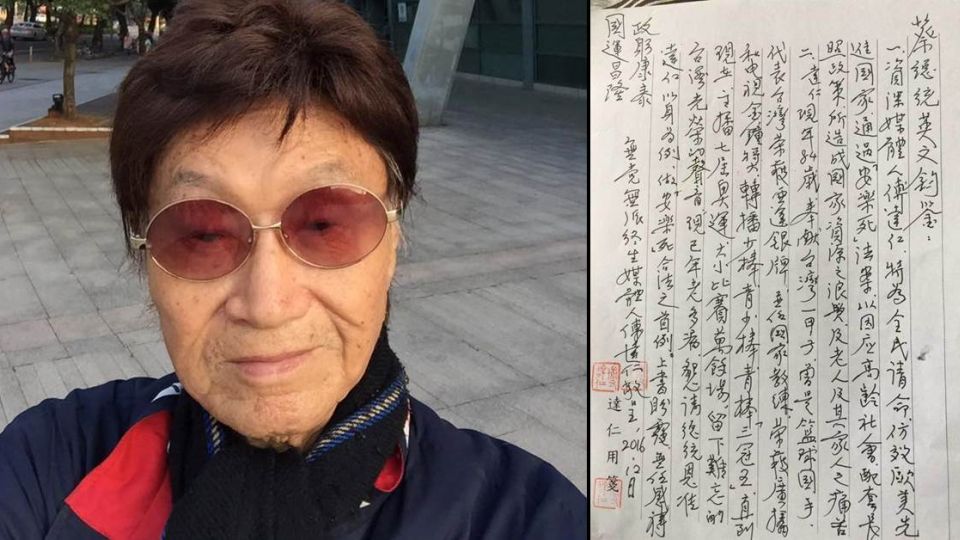 蔡總統英文鈞鑒：
一、資深媒體人傅達仁特為全民請命，仿效歐美先
進國家，通過「安樂死」法案，以因应高齡社會，配套長
照政策，所造成國家資源之浪費，及老人及其家人之痛苦
二、達仁現年84歲，奉献台灣一甲子，曾是篮球國手，
代表台灣榮获亞運銀牌，並任國家教練，榮获廣播
和電視金鐘獎，轉播少棒、青少棒、青棒「三冠王」，直到
主播七屆奧運大小比賽萬餘場，留下難忘的
台灣光榮的聲音，現已年老多病，懇請總統恩准
達仁以身為例，做「安樂死」合法之首例。上書盼覆無任感禱
政躬康泰
國運昌隆
無党無派終生媒體人傅達仁敬上 2016.12月
達仁用箋